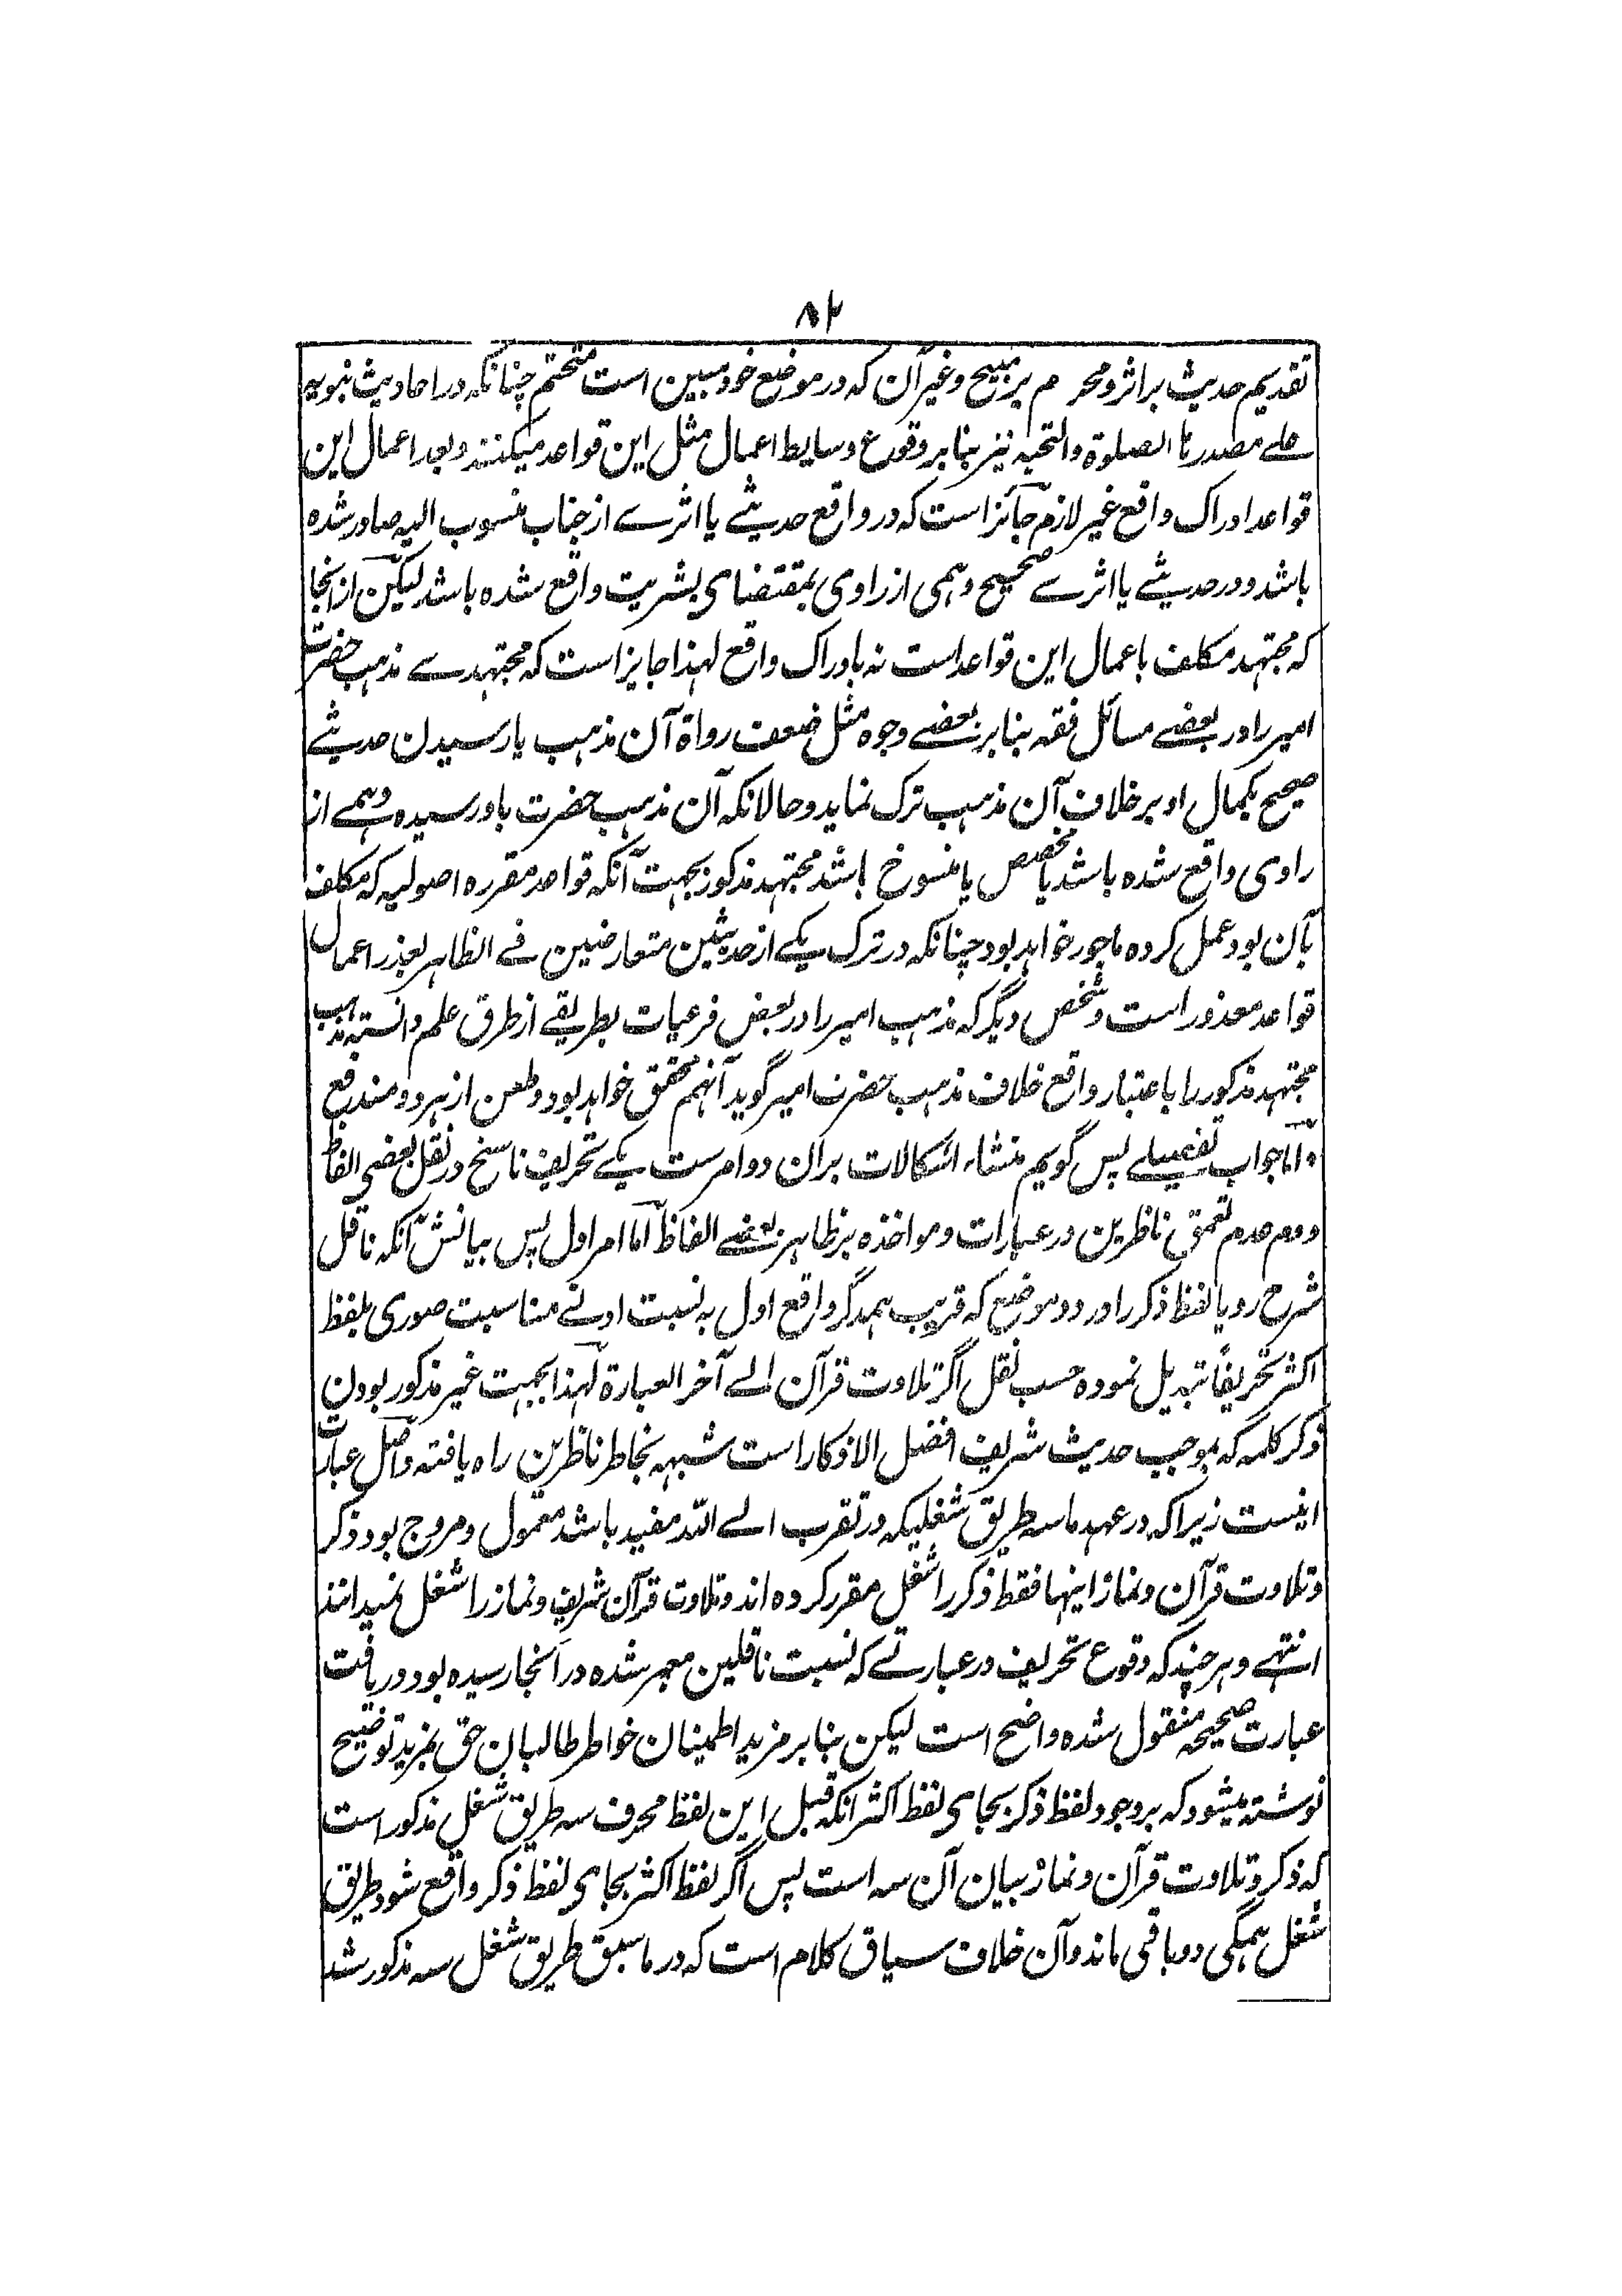 ۸۲
تقدیم حدیث بر اثر و محرم بر مبیح و غیر آن که در موضع خود مبین است متحتم چنانکه در احادیث نبویه
علے مصدرنا الصلوة والتحیه نیز بنا بر وقوع وسایط اعمال مثل این قواعد میکنند و بعد اعمال این
قواعد ادراک واقع غیر لازم جائز است که در واقع حدیثے یا اثرے از جناب منسوب الیه صادر شده
باشد و در حدیثے یا اثرے صحیح وہمی از راوی بمقتضای بشریت واقع شده باشد لیکن از انجا
که مجتہد مکلف باعمال این قواعد است نه بادراک واقع لہذا جایز است که مجتہدے مذہب حضرت
امیر را در بعضے مسائل فقه بنا بر بعضے وجوه مثل ضعف رواة آن مذہب یا رسیدن حدیثے
صحیح بکمال او بر خلاف آن مذہب ترک نماید و حالانکه آن مذہب حضرت باو رسیده وہمے از
راوی واقع شده باشد یا مخصص یا منسوخ باشد مجتہد مذکور بجہت آنکه قواعد مقرره اصولیه که مکلف
بآن بود عمل کرده ماجور خواہد بود چنانکه در ترک یکے از حدیثین متعارضین فے الظاہر بعذر اعمال
قواعد معذور است و شخص دیگر که مذہب امیر را در بعض فرعیات بطریقے از طرق علم دانسته مذہب
مجتہد مذکور را باعتبار واقع خلاف مذہب حضرت امیر گوید آنہم محقق خواہد بود و طعن از ہر دو مندفع
و اما جواب تفصیلے پس گویم منشاء اشکالات بر آن دو امرست یکے تحریف ناسخ در نقل بعضی الفاظ
دوم عدم تعمق ناظرین در عبارات و مواخذه بر ظاہر بعضے الفاظ اما امر اول پس بیانش آنکه ناقل
شرح رویا لفظ ذکر را در دو موضع که قریب ہمدگر واقع اول به نسبت ادنے مناسبت صوری بلفظ
اکثر تحریفاً تبدیل نموده حسب نقل اگر تلاوت قرآن الے آخر العبارة لہذا بجہت غیر مذکور بودن
ذکر کلمه که بموجب حدیث شریف افضل الاذکار است شبہه بخاطر ناظرین راه یافته و اصل عبارت
اینست زیرا که در عہد ما سه طریق شغلیکه در تقرب الے اللہ مفید باشد معمول و مروج بود ذکر
و تلاوت قرآن و نماز اینہا فقط ذکر را شغل مقرر کرده اند و تلاوت قرآن شریف و نماز را شغل نمیدانند
انتہے و ہر چند که وقوع تحریف در عبارتے که نسبت ناقلین معبر شده در آنجا رسیده بود دریافت
عبارت صحیحه منقول شده واضح است لیکن بنا بر مزید اطمینان خواطر طالبان حق بمزید توضیح
نوشته میشود که بر وجود لفظ ذکر بجای لفظ اکثر انکه قبل این لفظ محرف سه طریق شغل مذکور است
که ذکر و تلاوت قرآن و نماز بیان آن سه است پس اگر لفظ اکثر بجای لفظ ذکر واقع شود طریق
شغل ہمگی دو باقی ماند و آن خلاف سیاق کلام است که در ماسبق طریق شغل سه مذکور شد